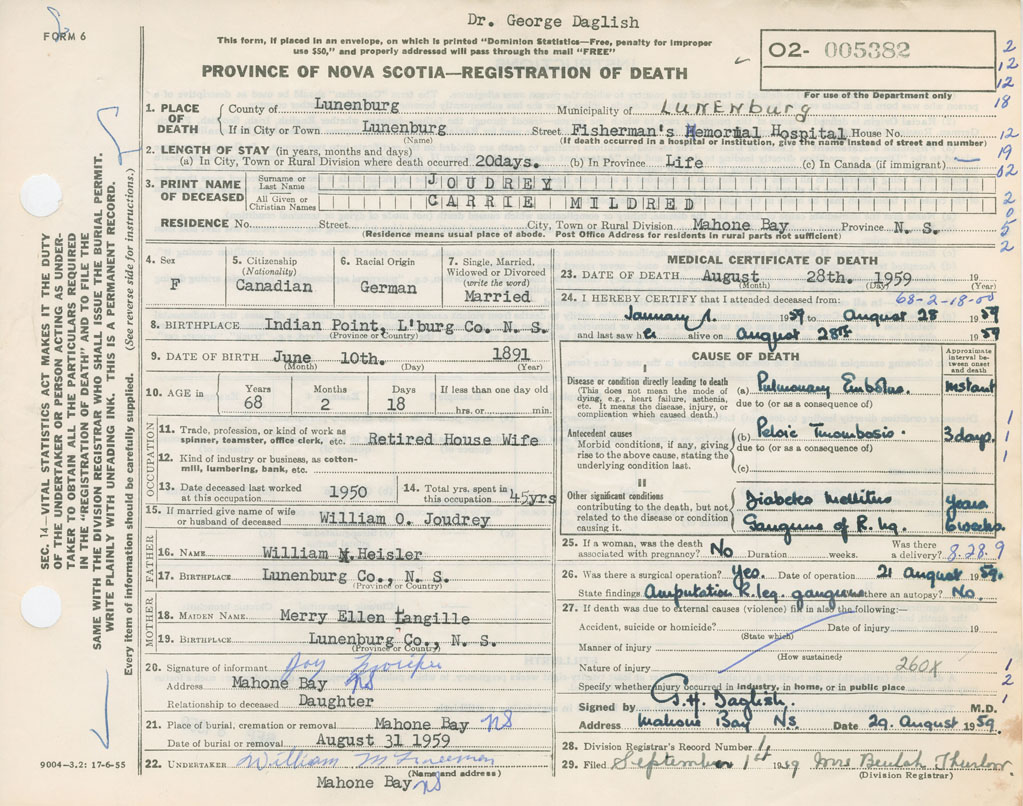 Dr. George Daglish
FORM 6
This form, if placed in an envelope, on which is printed "Dominion Statistics—Free, penalty for improper
use $50," and properly addressed will pass through the mail "FREE"
PROVINCE OF NOVA SCOTIA—REGISTRATION OF DEATH
02- 005382
For use of the Department only
2
12
12
18
12
19
02
2
0
5
2
1. PLACE OF DEATH
County of Lunenburg Municipality of LUNENBURG
If in City or Town Lunenburg Street Fisherman's Memorial Hospital House No.
(Name) (If death occurred in a hospital or institution, give the name instead of street and number)
2. LENGTH OF STAY (in years, months and days)
(a) In City, Town or Rural Division where death occurred 20days. (b) In Province Life (c) In Canada (if immigrant) —
3. PRINT NAME OF DECEASED
Surname or Last Name JOUDREY
All Given or Christian Names CARRIE MILDRED
RESIDENCE No. Street City, Town or Rural Division Mahone Bay Province N. S.
(Residence means usual place of abode. Post Office Address for residents in rural parts not sufficient)
4. Sex F
5. Citizenship (Nationality) Canadian
6. Racial Origin German
7. Single, Married, Widowed or Divorced (write the word) Married
8. BIRTHPLACE Indian Point, L'burg Co. N. S.
(Province or Country)
9. DATE OF BIRTH June 10th. 1891
(Month) (Day) (Year)
10. AGE in Years 68 Months 2 Days 18 If less than one day old hrs. or min.
OCCUPATION
11. Trade, profession, or kind of work as spinner, teamster, office clerk, etc. Retired House Wife
12. Kind of industry or business, as cotton-mill, lumbering, bank, etc.
13. Date deceased last worked at this occupation 1950
14. Total yrs. spent in this occupation 45yrs
15. If married give name of wife or husband of deceased William O. Joudrey
FATHER
16. NAME William M. Heisler
17. BIRTHPLACE Lunenburg Co., N. S.
(Province or Country)
MOTHER
18. MAIDEN NAME Merry Ellen Langille
19. BIRTHPLACE Lunenburg Co., N. S.
(Province or Country)
20. Signature of informant Joy
Address Mahone Bay NS
Relationship to deceased Daughter
21. Place of burial, cremation or removal Mahone Bay NS
Date of burial or removal August 31 1959
22. UNDERTAKER William M Freeman
(Name and address)
Mahone Bay NS
MEDICAL CERTIFICATE OF DEATH
23. DATE OF DEATH August 28th. 1959 19
(Month) (Day) (Year)
24. I HEREBY CERTIFY that I attended deceased from: 68-2-18-00
January 1. 1959 to August 28 1959
and last saw her alive on August 28th 1959
CAUSE OF DEATH
Approximate interval between onset and death
I
Disease or condition directly leading to death
(This does not mean the mode of dying, e.g., heart failure, asthenia, etc. It means the disease, injury, or complication which caused death.)
(a) Pulmonary Embolus. instant
due to (or as a consequence of)
Antecedent causes
Morbid conditions, if any, giving rise to the above cause, stating the underlying condition last.
(b) Pelvic Thrombosis. 3 days.
due to (or as a consequence of)
(c)
1
1
1
II
Other significant conditions
contributing to the death, but not related to the disease or condition causing it.
Diabetes Mellitus years
Gangrene of R. leg. 6 weeks
25. If a woman, was the death associated with pregnancy? No Duration weeks. Was there a delivery? 8.28.9
26. Was there a surgical operation? Yes. Date of operation 21 August 1959.
State findings Amputation R. leg. gangrene Was there an autopsy? No.
27. If death was due to external causes (violence) fill in also the following:—
Accident, suicide or homicide? Date of injury 19
(State which)
Manner of injury
(How sustained)
Nature of injury 260X
Specify whether injury occurred in industry, in home, or in public place
1
2
1
Signed by G.H. Daglish. M.D.
Address Mahone Bay Ns. Date 29. August 1959.
28. Division Registrar's Record Number
29. Filed September 1st 1959 Mrs Beulah Thurlow
(Division Registrar)
SEC. 14 VITAL STATISTICS ACT MAKES IT THE DUTY
OF THE UNDERTAKER OR PERSON ACTING AS UNDER-
TAKER TO OBTAIN ALL THE PARTICULARS REQUIRED
IN THE "REGISTRATION OF DEATH" AND TO FILE THE
SAME WITH THE DIVISION REGISTRAR WHO SHALL ISSUE THE BURIAL PERMIT.
WRITE PLAINLY WITH UNFADING INK. THIS IS A PERMANENT RECORD.
Every item of information should be carefully supplied. (See reverse side for instructions.)
9004-3.2: 17-6-55